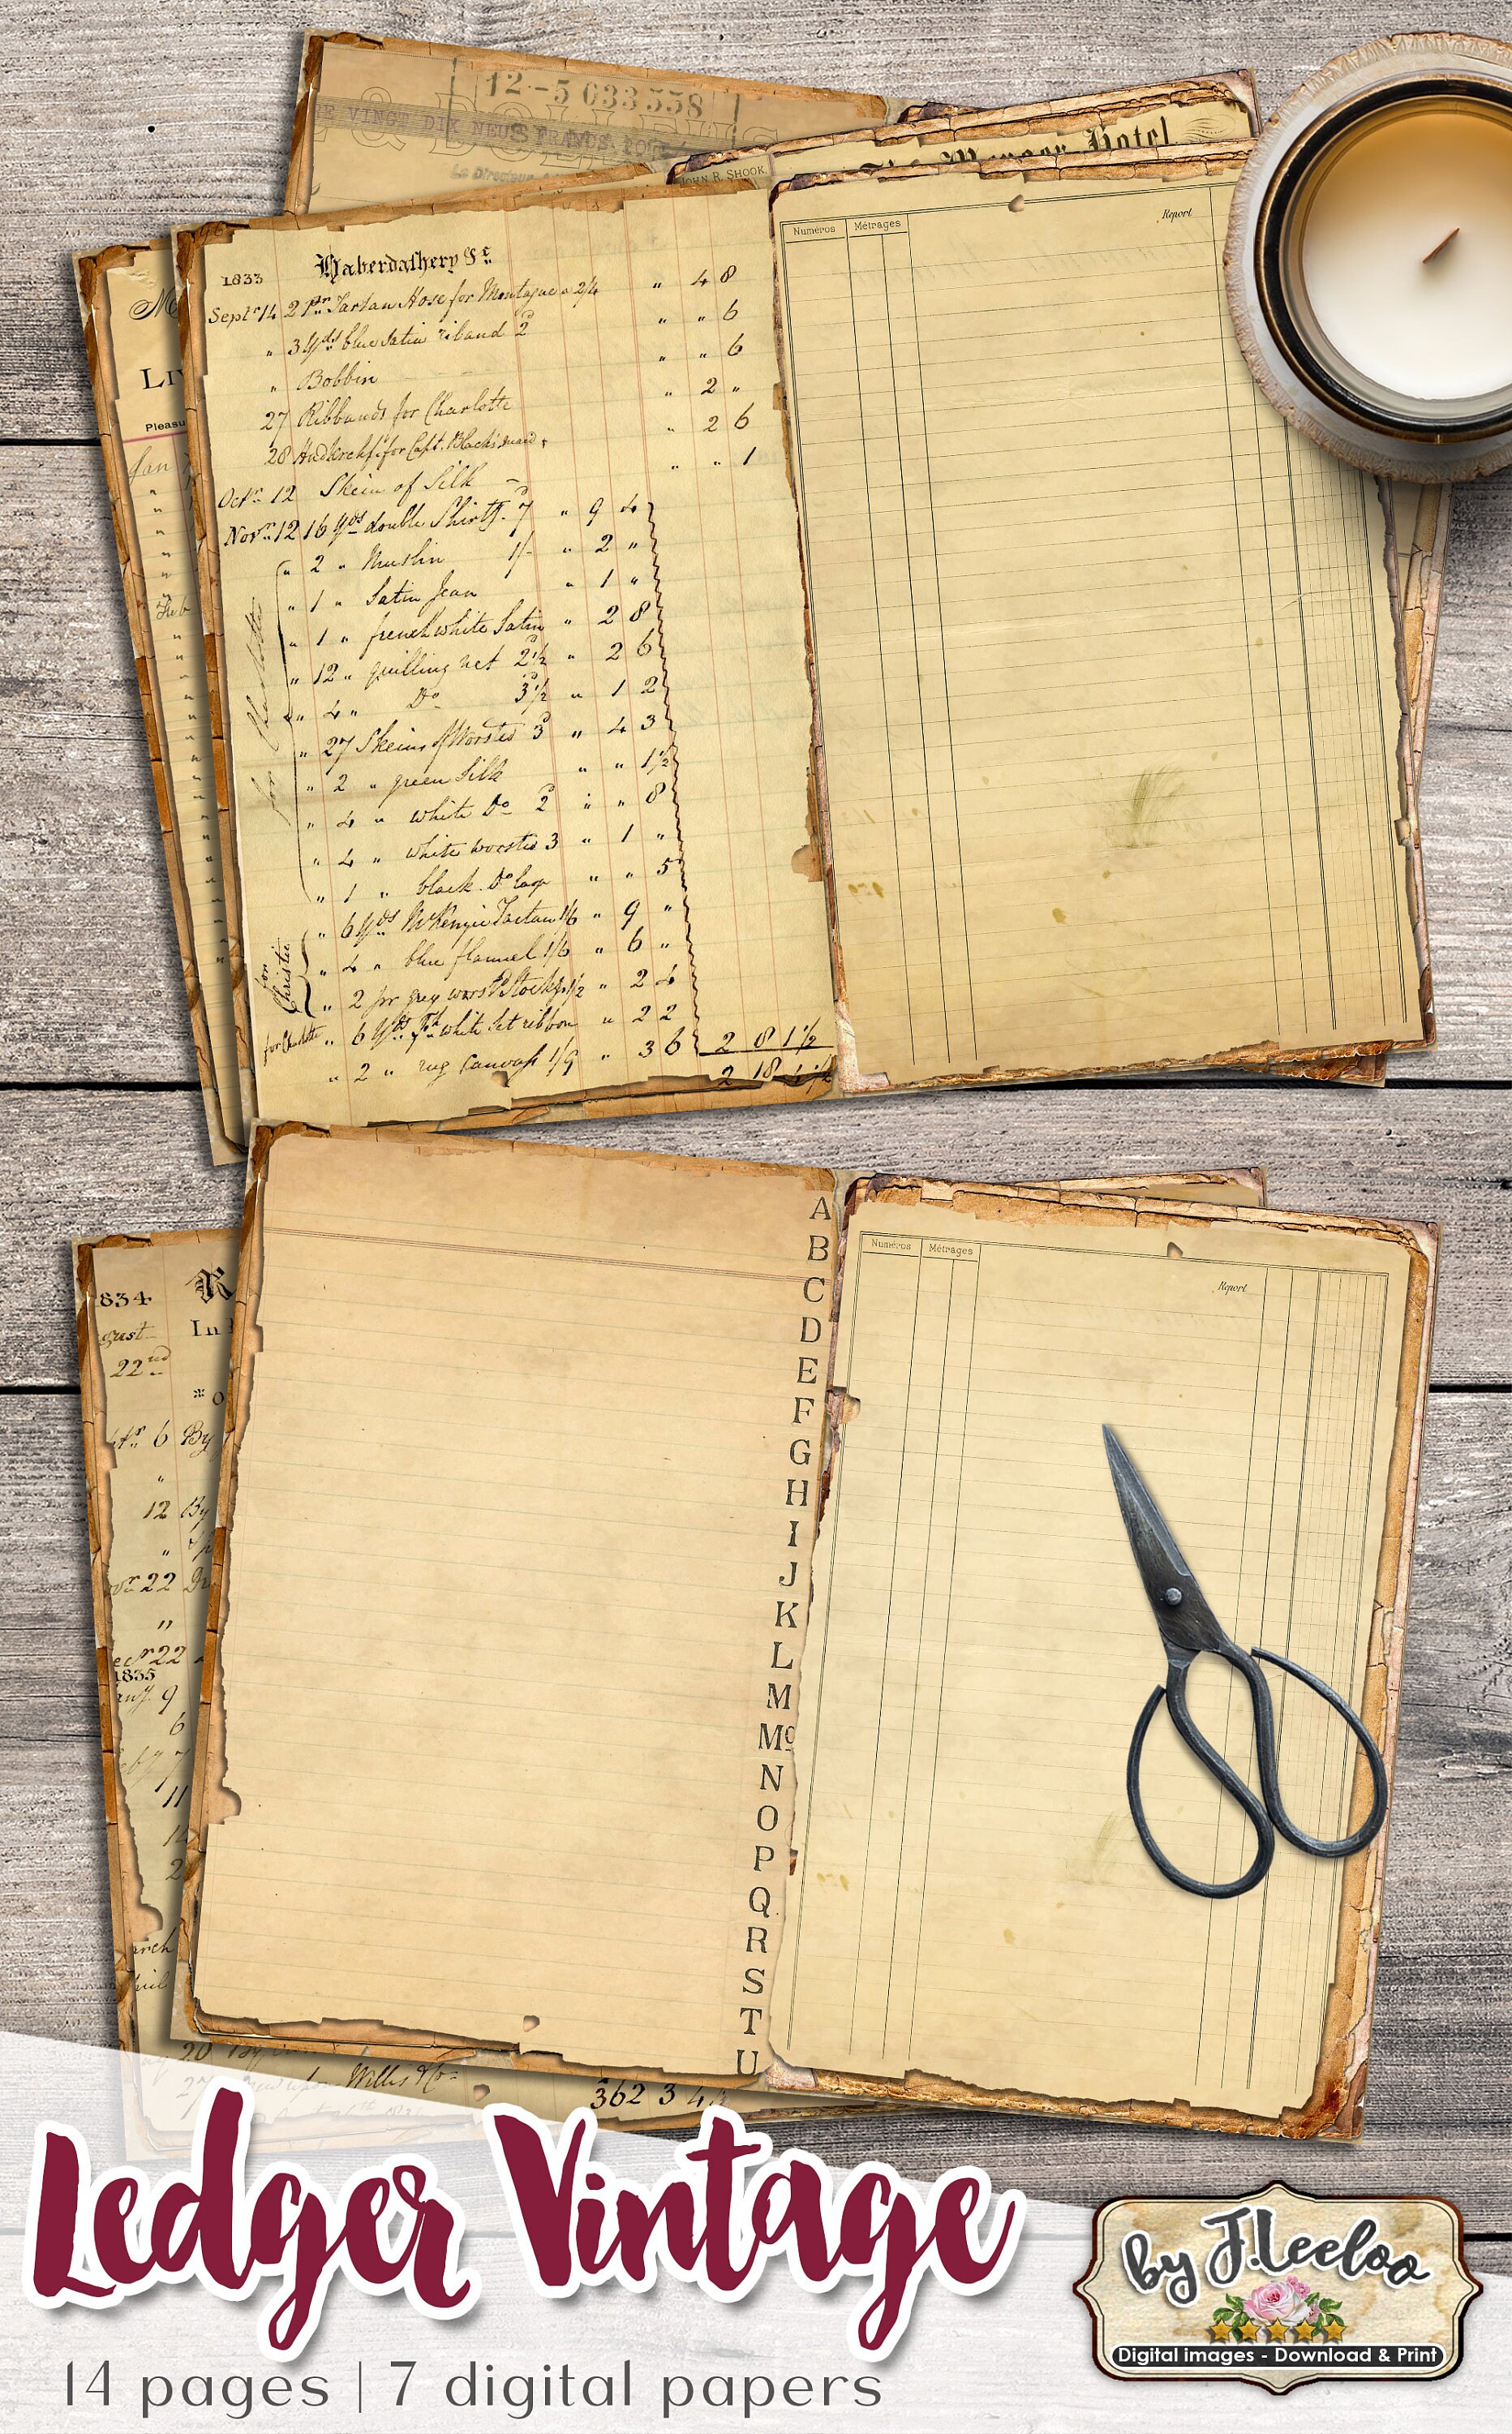 12-5 033558
VINGT DIX NEUF FRANCS
Le Directeur
Hotel
JOHN R. SHOOK
Numéros Métrages Report
1833 Haberdashery &c.
Septr 14 2 pr Tartan Hose for Montague a 2/4 " 4 8
" 3 Yds blue Satin riband 2d " " 6
" Bobbin " " 6
27 Ribbands for Charlotte " 2 "
28 Hndkrchf. for Capt. Black's maid " 2 6
Octr. 12 Skein of Silk " " 1
Novr. 12 16 Yds double Shirtg. 7d " 9 4
" 2 " Muslin 1/- " 2 "
" 1 " Satin Jean " 1 "
" 1 " french white Satin " 2 8
" 12 " quilling net 2½d " 2 6
" 4 " Do 3½d " 1 2
" 27 Skeins of Worsted 3d " 4 3
" 2 " green Silk " " 1½
" 4 " white Do 2d " " 8
" 4 " white worsted 3 " 1 "
" 1 " black Do " " 5
for Charlotte
" 6 Yds McKenzie Tartan 1/6 " 9 "
" 4 " blue flannel 1/6 " 6 "
" 2 pr grey 1/2 " 2 4
for Christie
for Charlotte " 6 Yds white ribbon " 2 2
" 2 " rug Canvass 1/9 " 3 6 2 8 1½
2 18
Pleasu
Jan
A
B
C
D
E
F
G
H
I
J
K
L
M
Mc
N
O
P
Q
R
S
T
U
Numéros Métrages Report
834 R
gust In
22nd
6 By
12 By
22
22
1835
9
6
11
20
Willis & Co
362 3 4
Ledger Vintage
14 pages | 7 digital papers
by J.Leeloo
Digital images - Download & Print